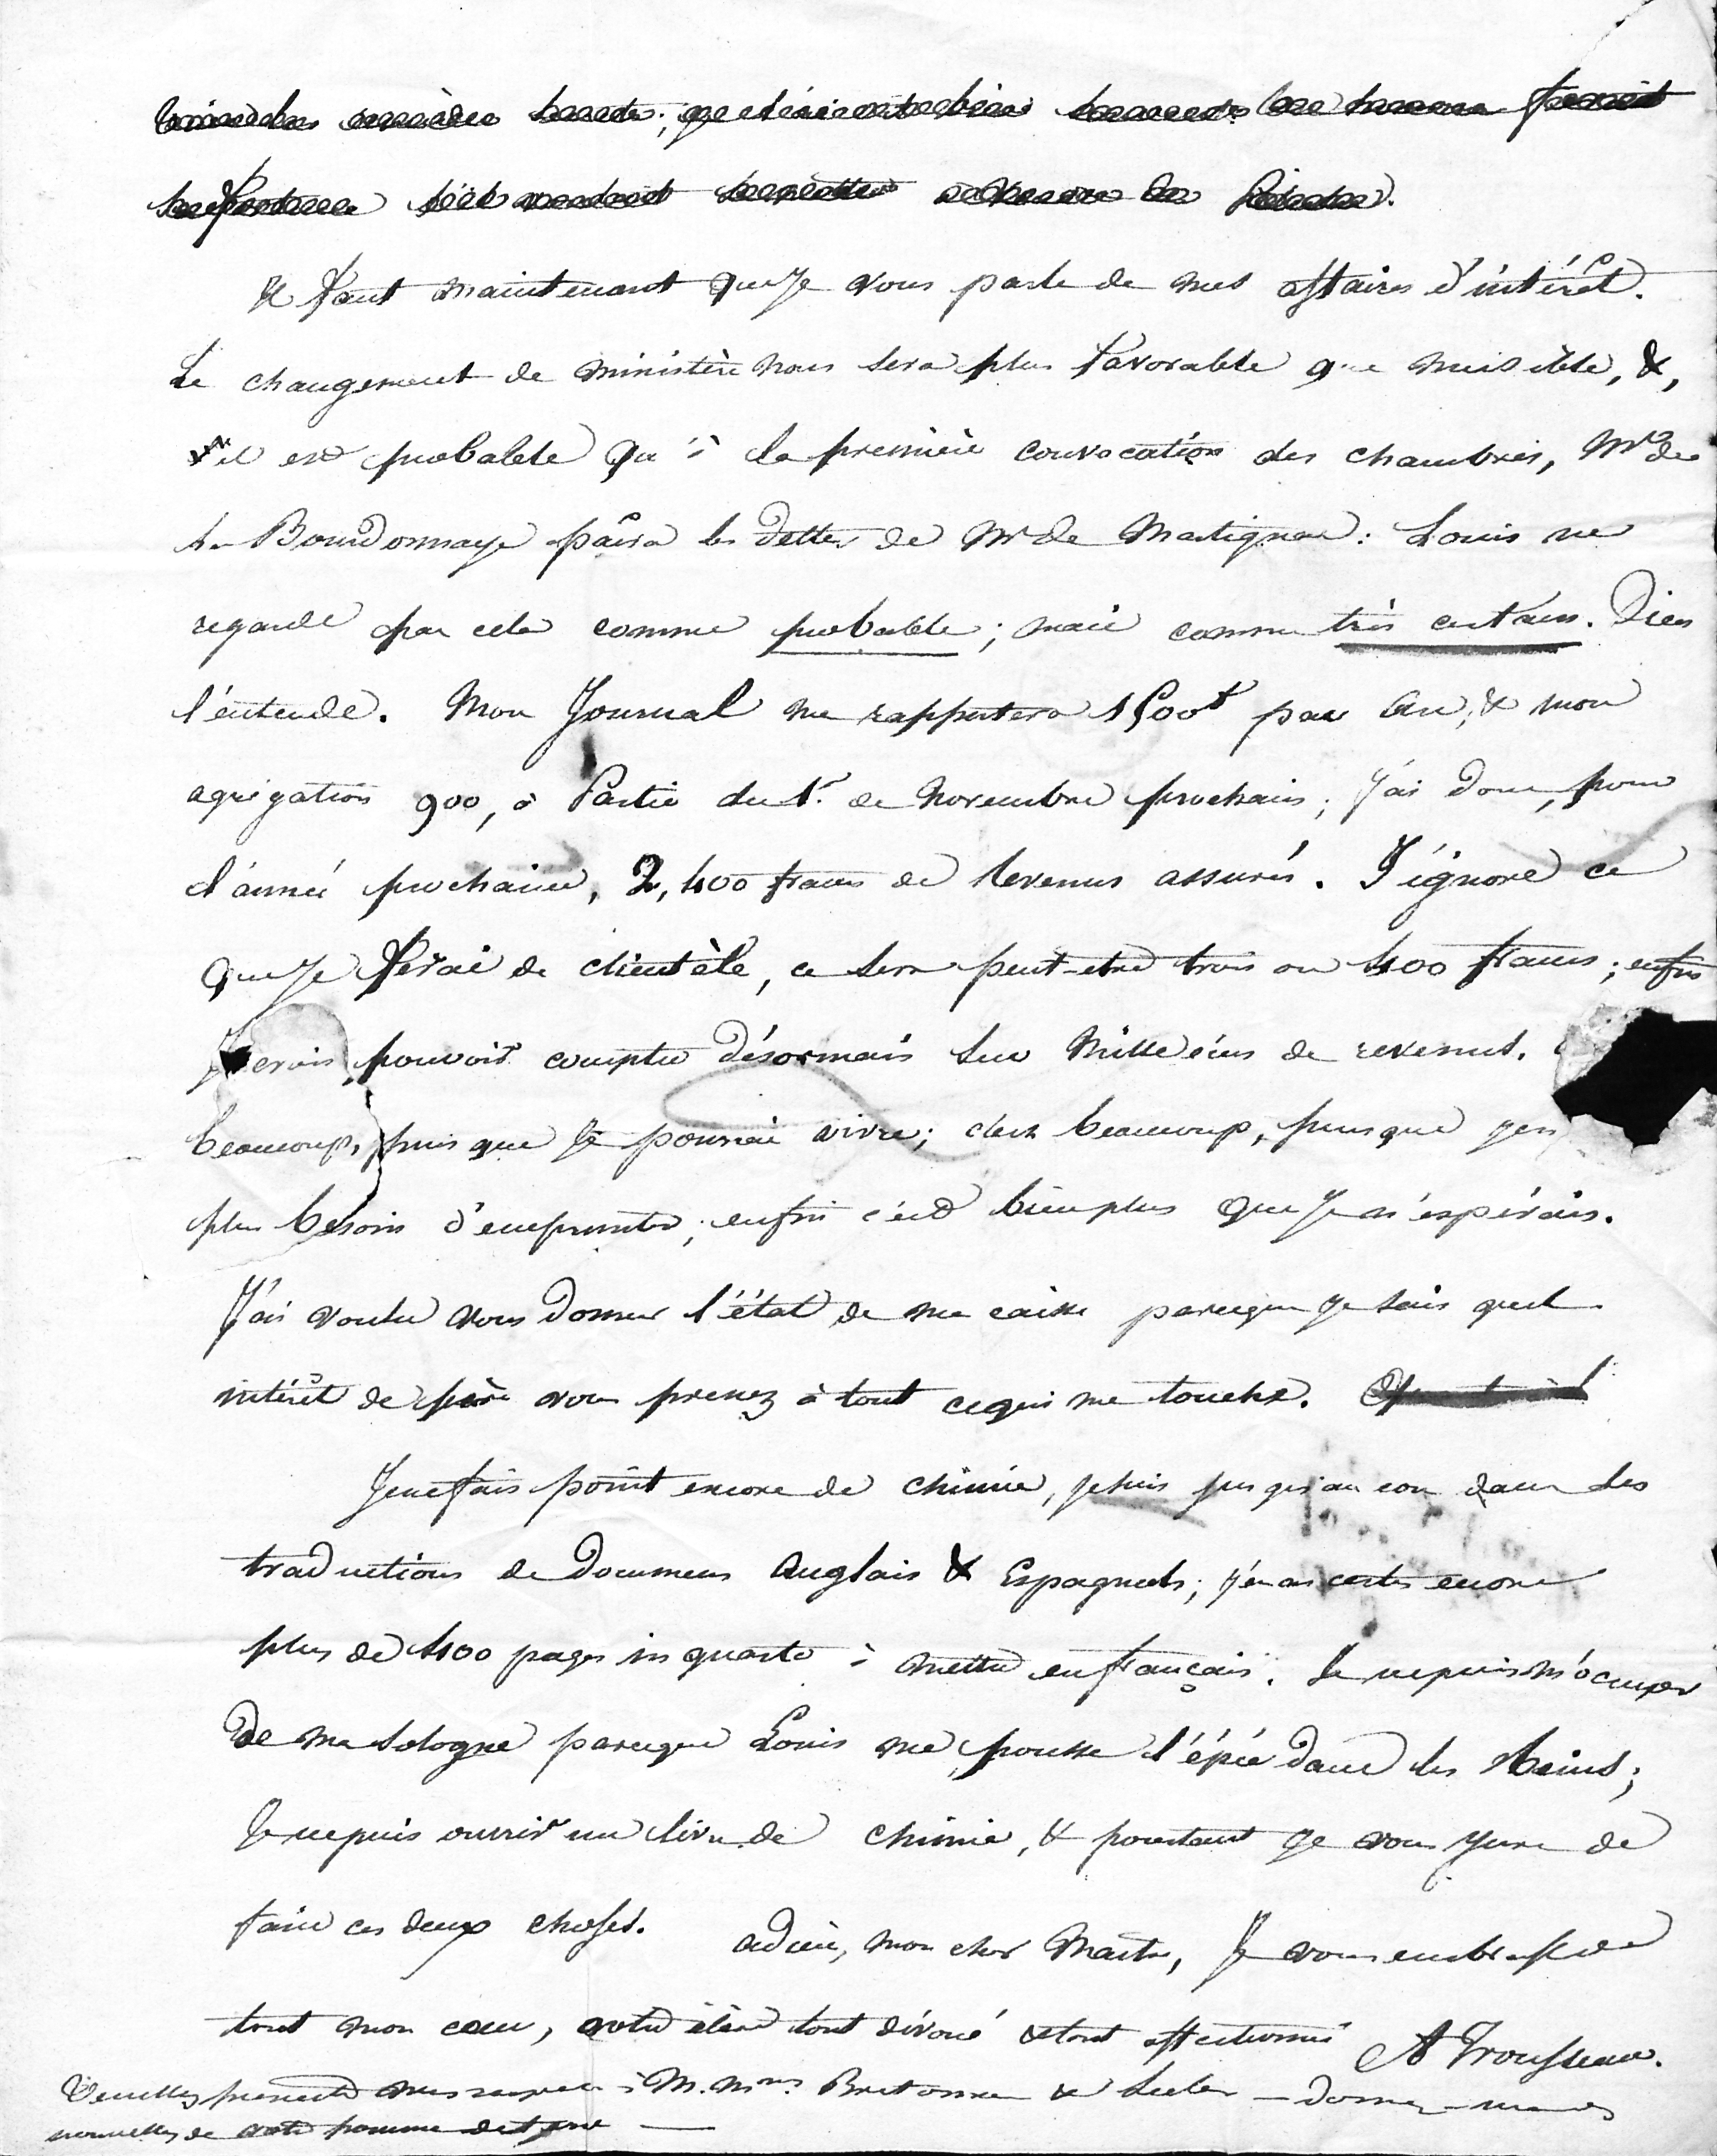 Il faut maintenant que je vous parle de mes affaires d'intérêt.
Le changement de ministère nous sera plus favorable que nuisible, &,
il est probable qu'à la première convocation des chambres, Mr de
la Bourdonnaye païra les dettes de Mr de Martignac : Louis ne
regarde pas cela comme probable ; mais comme très certain. Dieu
l'entende. Mon Journal me rapportera 1500f par an, & mon
agrégation 900, à Partir du 1er de Novembre prochain ; j'ai donc, pour
l'année prochaine, 2,400 francs de revenus assurés. J'ignore ce
que je ferai de clientèle, ce sera peut-etre trois ou 400 francs ; enfin
je crois pouvoir compter désormais sur Mille écus de revenus.
beaucoup, puisque je pourrai vivre ; c'est beaucoup, puisque
plus besoin d'emprunter ; enfin c'est bien plus que je n'espérais.
J'ai voulu vous donner l'état de ma caisse parceque je sais quel
intérêt de père vous prenez à tout cequi me touche.
Je ne fais point encore de chimie, je suis jusqu'au cou dans les
traductions de Documens Anglais & Espagnols ; j'en ai certes encore
plus de 400 pages in quarto à mettre en français. Je ne puis m'ocuper
de ma Sologne parceque Louis me pousse l'épée dans les Reins ;
Je ne puis ouvrir un livre de chimie, & pourtant je vous jure de
faire ces deux choses. adieu, mon cher Maitre, Je vous embrasse de
tout mon cœur, votre élève tout dévoué & tout affectionné A Trousseau.
Veuillez presenter mes respects à M. Mmes Bretonneau & — Donnez-moi des
nouvelles de votre pomme de terre —